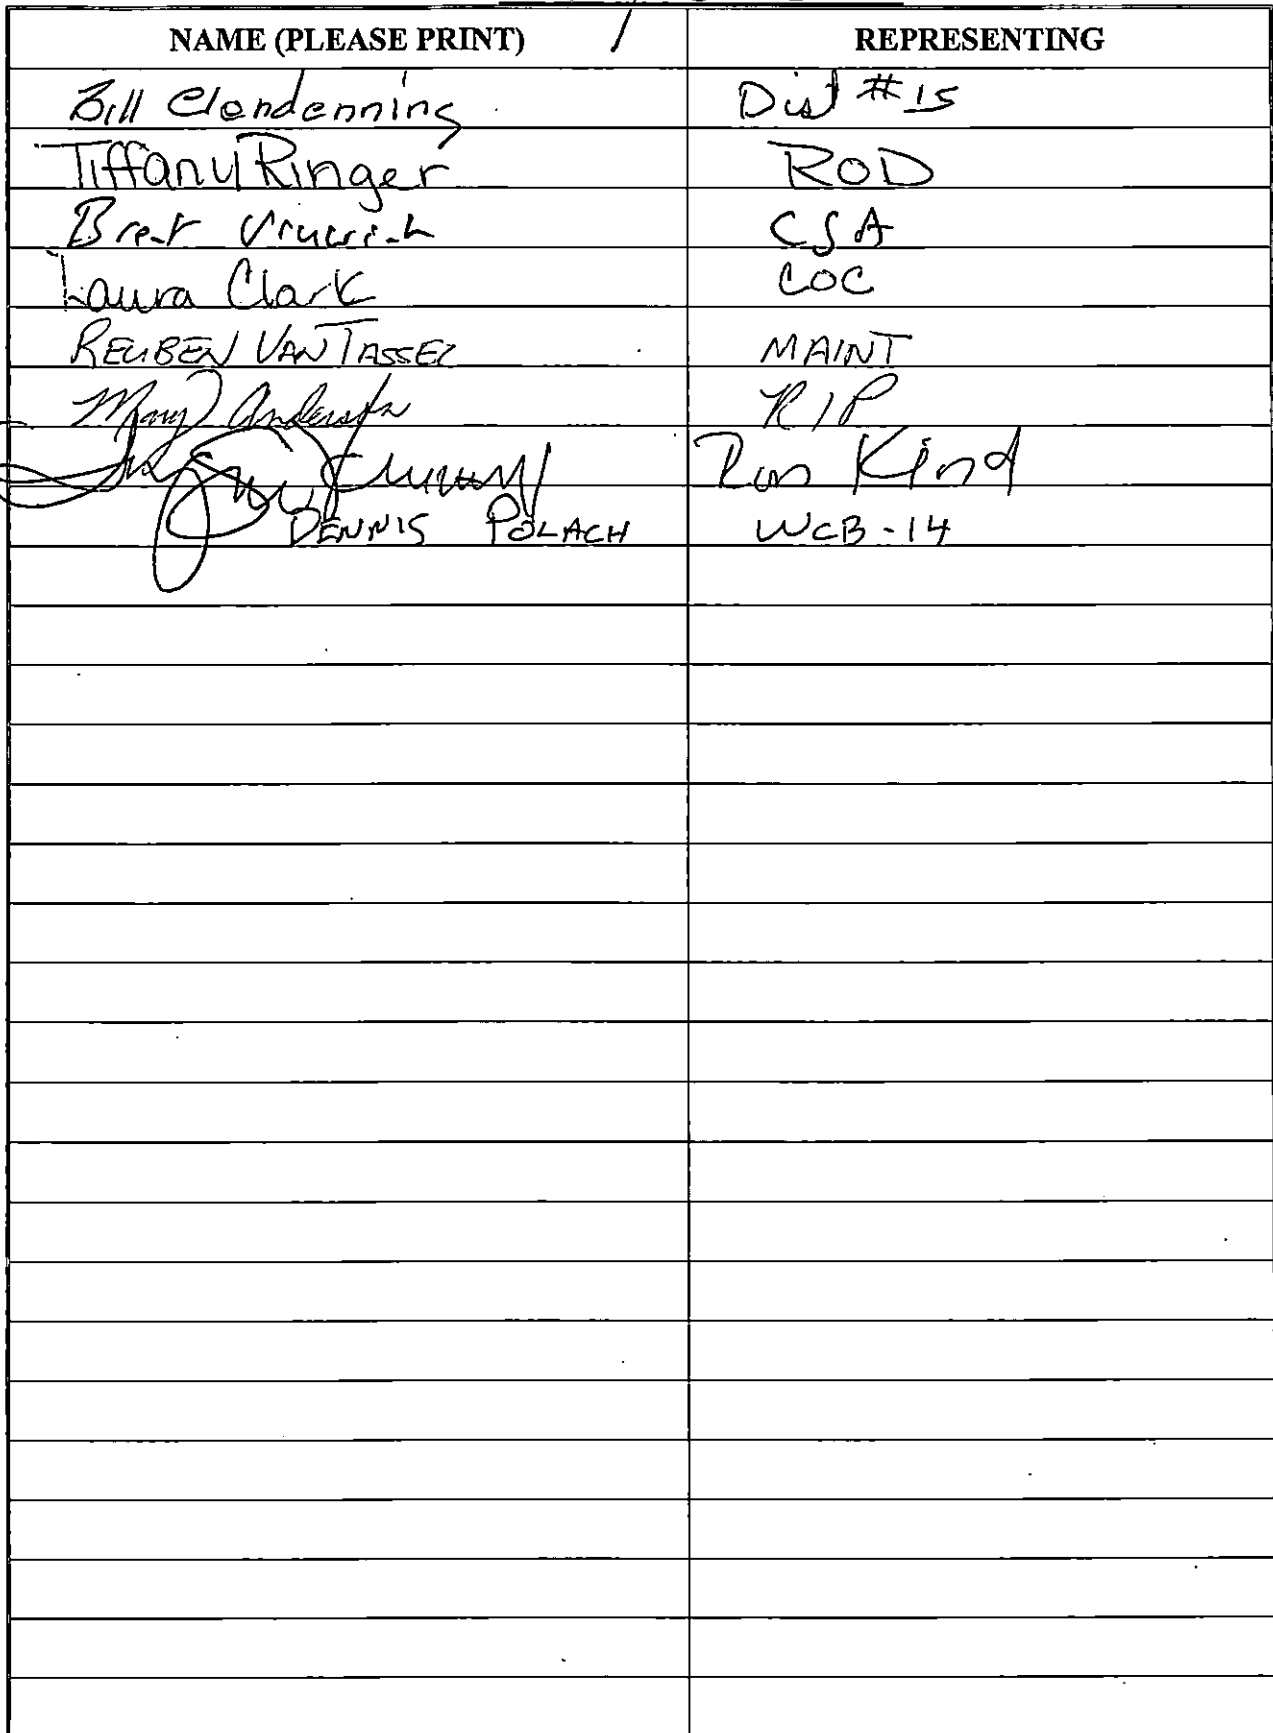 NAME (PLEASE PRINT) REPRESENTING
Bill Clendenning Dist #15
Tiffany Ringer ROD
Bret CSA
Laura Clark COC
REUBEN VAN TASSEL MAINT
Mary Anderson RIP
Ron Kind
DENNIS POLACH WCB-14